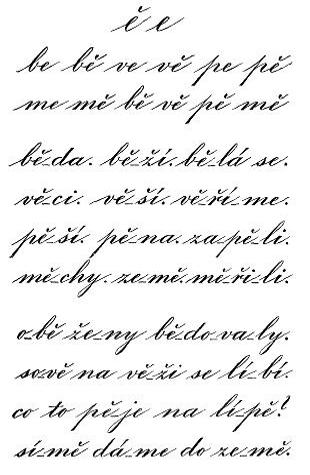 ě e
be bě ve vě pe pě
me mě bě vě pě mě
bě-da. bě-ží. bě-lá se.
vě-ci. vě-ší. vě-ří-me.
pě-ší. pě-na. za-pě-li.
mě-chy. ze-mě. mě-ři-li.
o-bě že-ny bě-do-va-ly.
so-vě na vě-ži se lí-bí.
co to pě-je na lí-pě?
sí-mě dá-me do ze-mě.